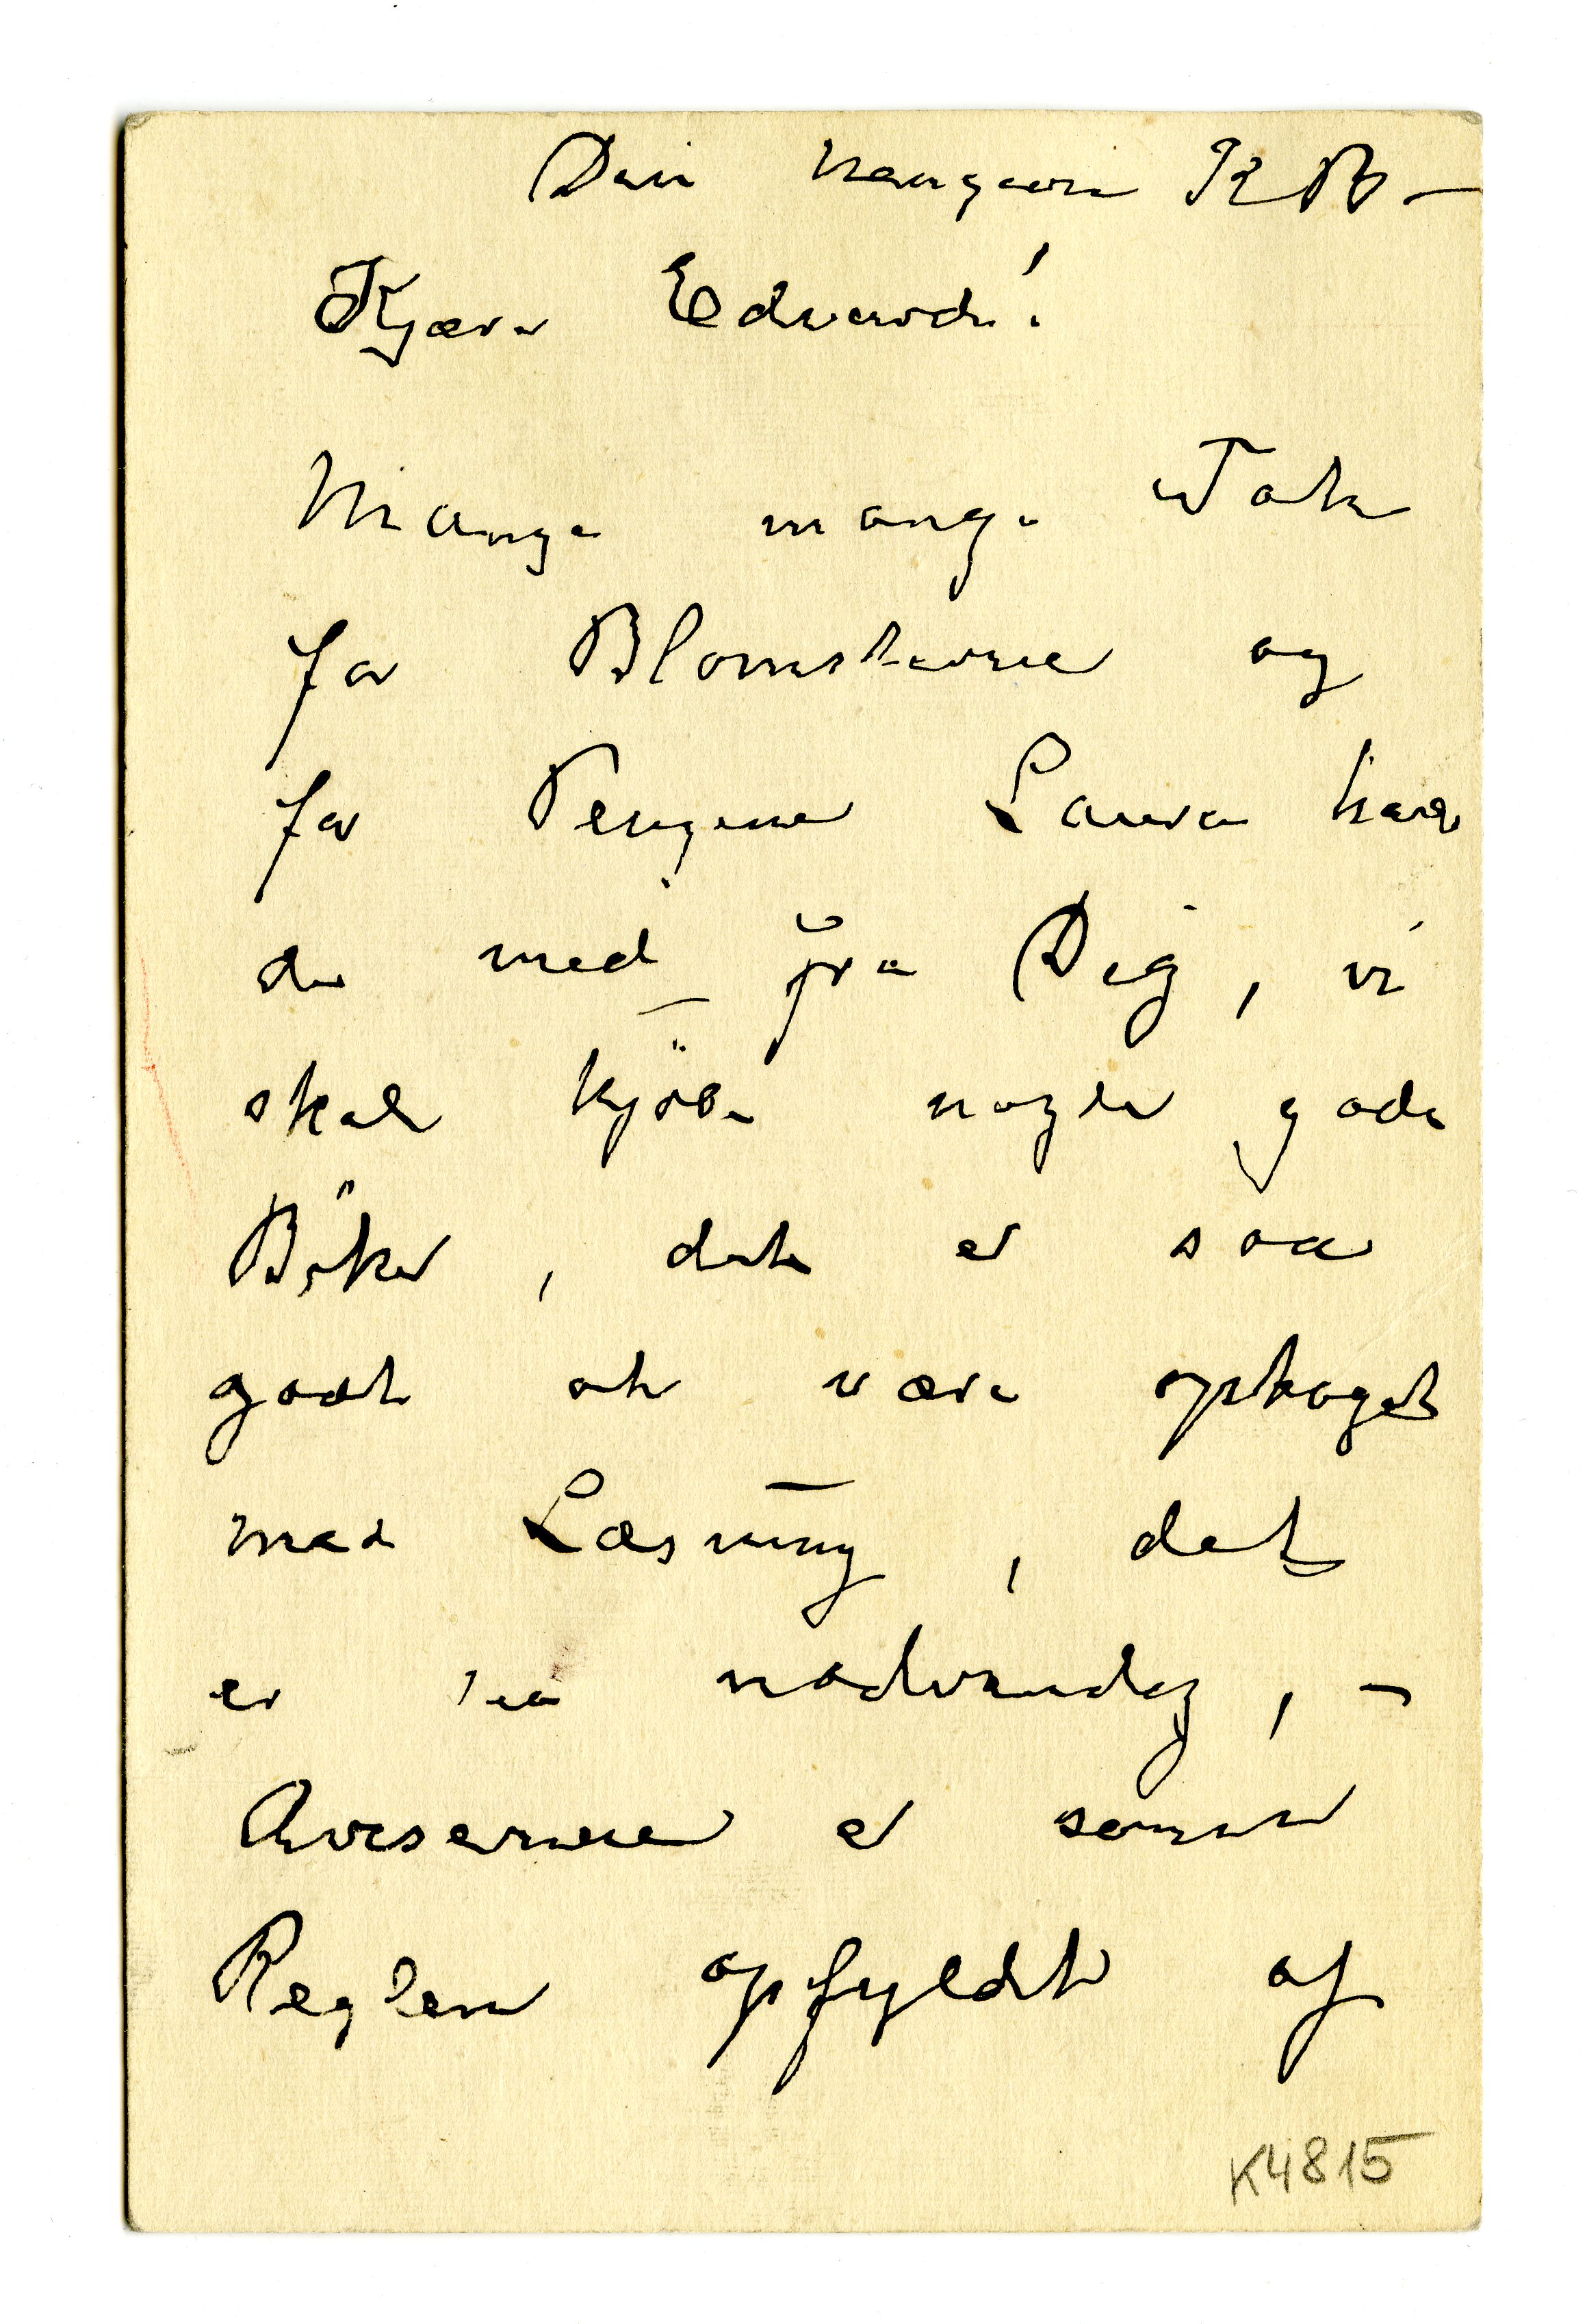 Din hengivne K B –
Kjære Edvard!
Mange mange Tak
for Blomsterne og
for Pengene Laura havde
med fra Dig, vi
skal kjöbe nogle gode
Böker, det er saa
godt at være optaget
med Læsning, det
er saa nødvendig, –
Aviserne er som
Reglen opfyldt af
K4815